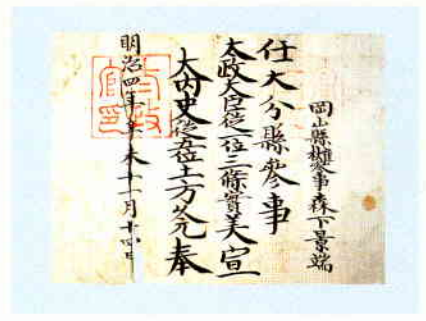 岡山縣權參事森下景端
任大分縣參事
太政大臣從一位三條實美宣
大内史從五位土方久元奉
明治四年辛未十一月十四日
太政官印